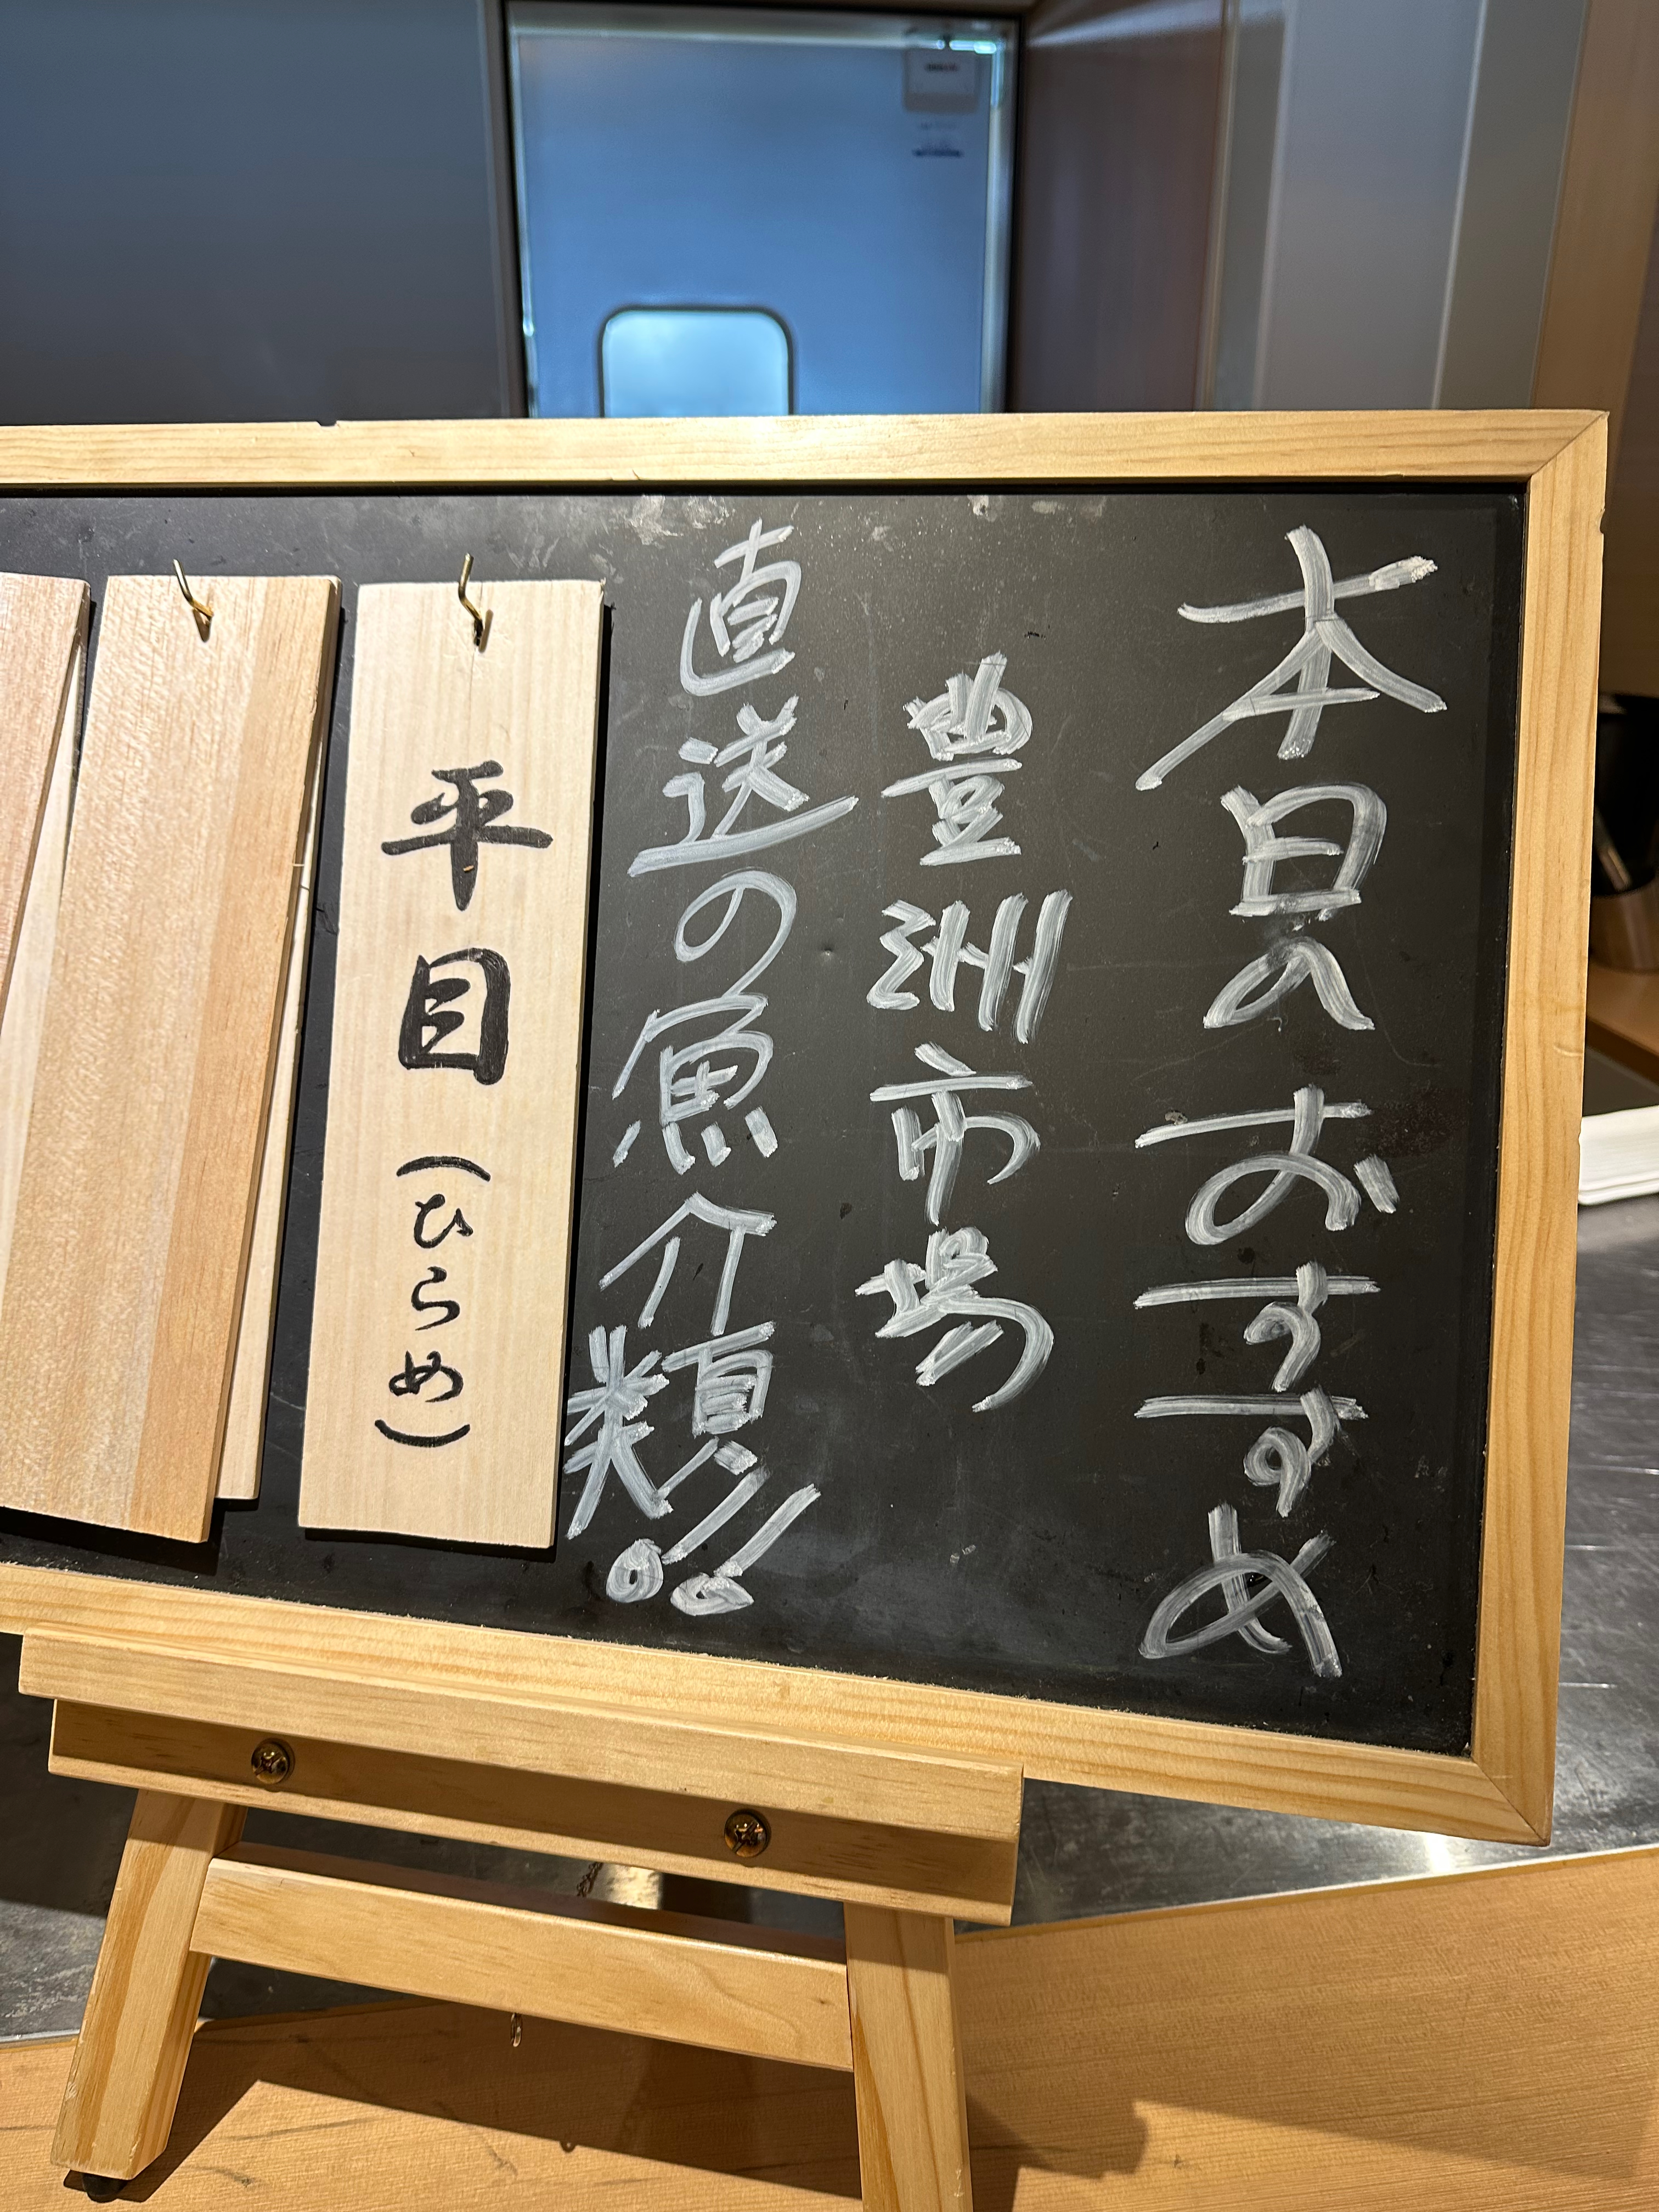 本日のおすすめ
豊洲市場
直送の魚介類!!
平目(ひらめ)